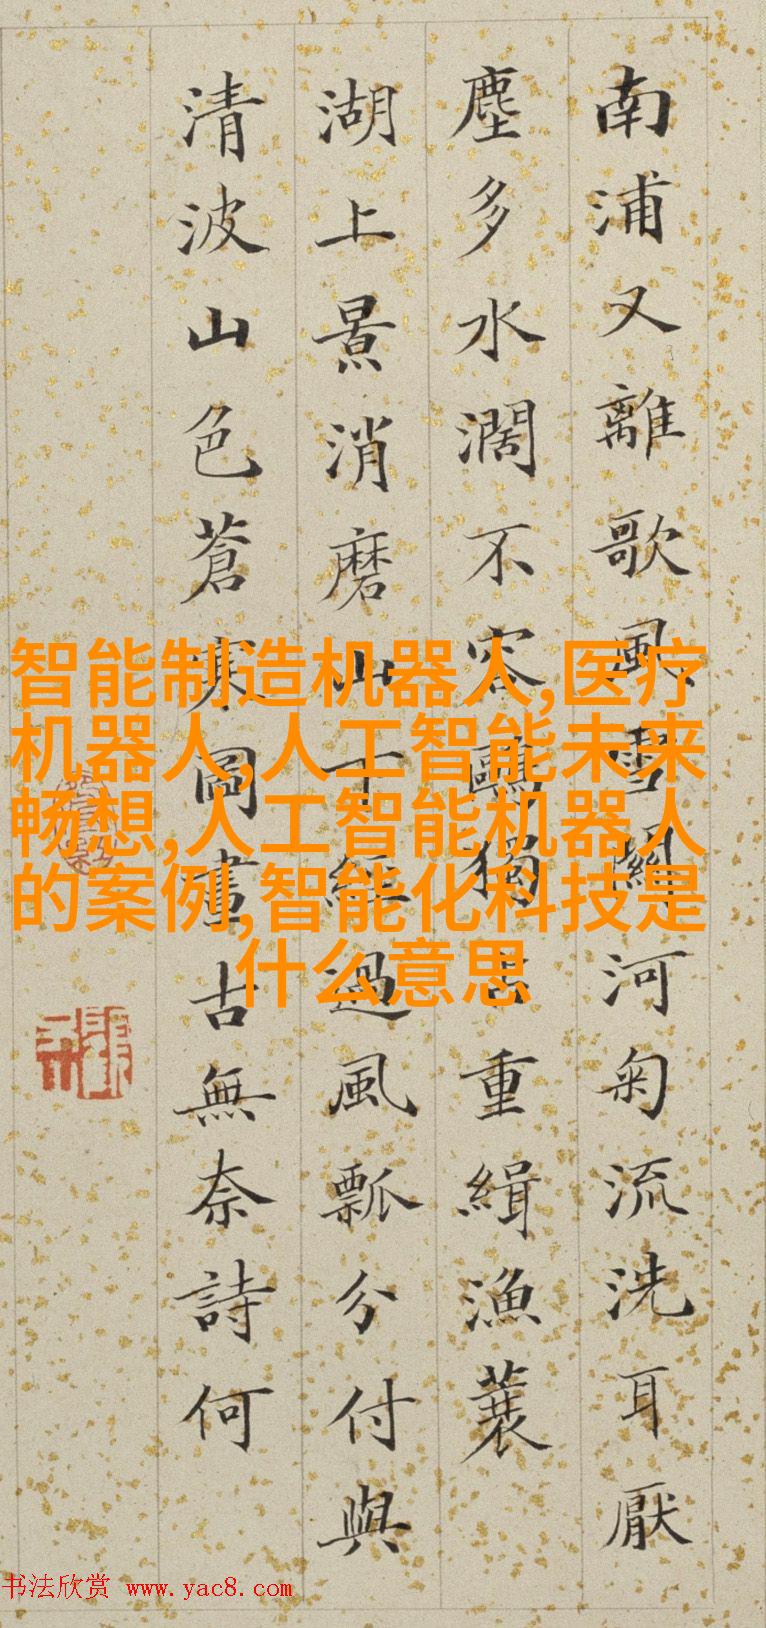 南浦又離歌風雪關河菊流洗耳厭
塵多水濶不容鷗獨占重緝漁蓑
湖上景消磨山十經過風瓢分付與
清波山色蒼寒圖畫古無奈詩何
智能制造机器人,医疗
机器人,人工智能未来
畅想,人工智能机器人
的案例,智能化科技是
什么意思
书法欣赏 www.yac8.com